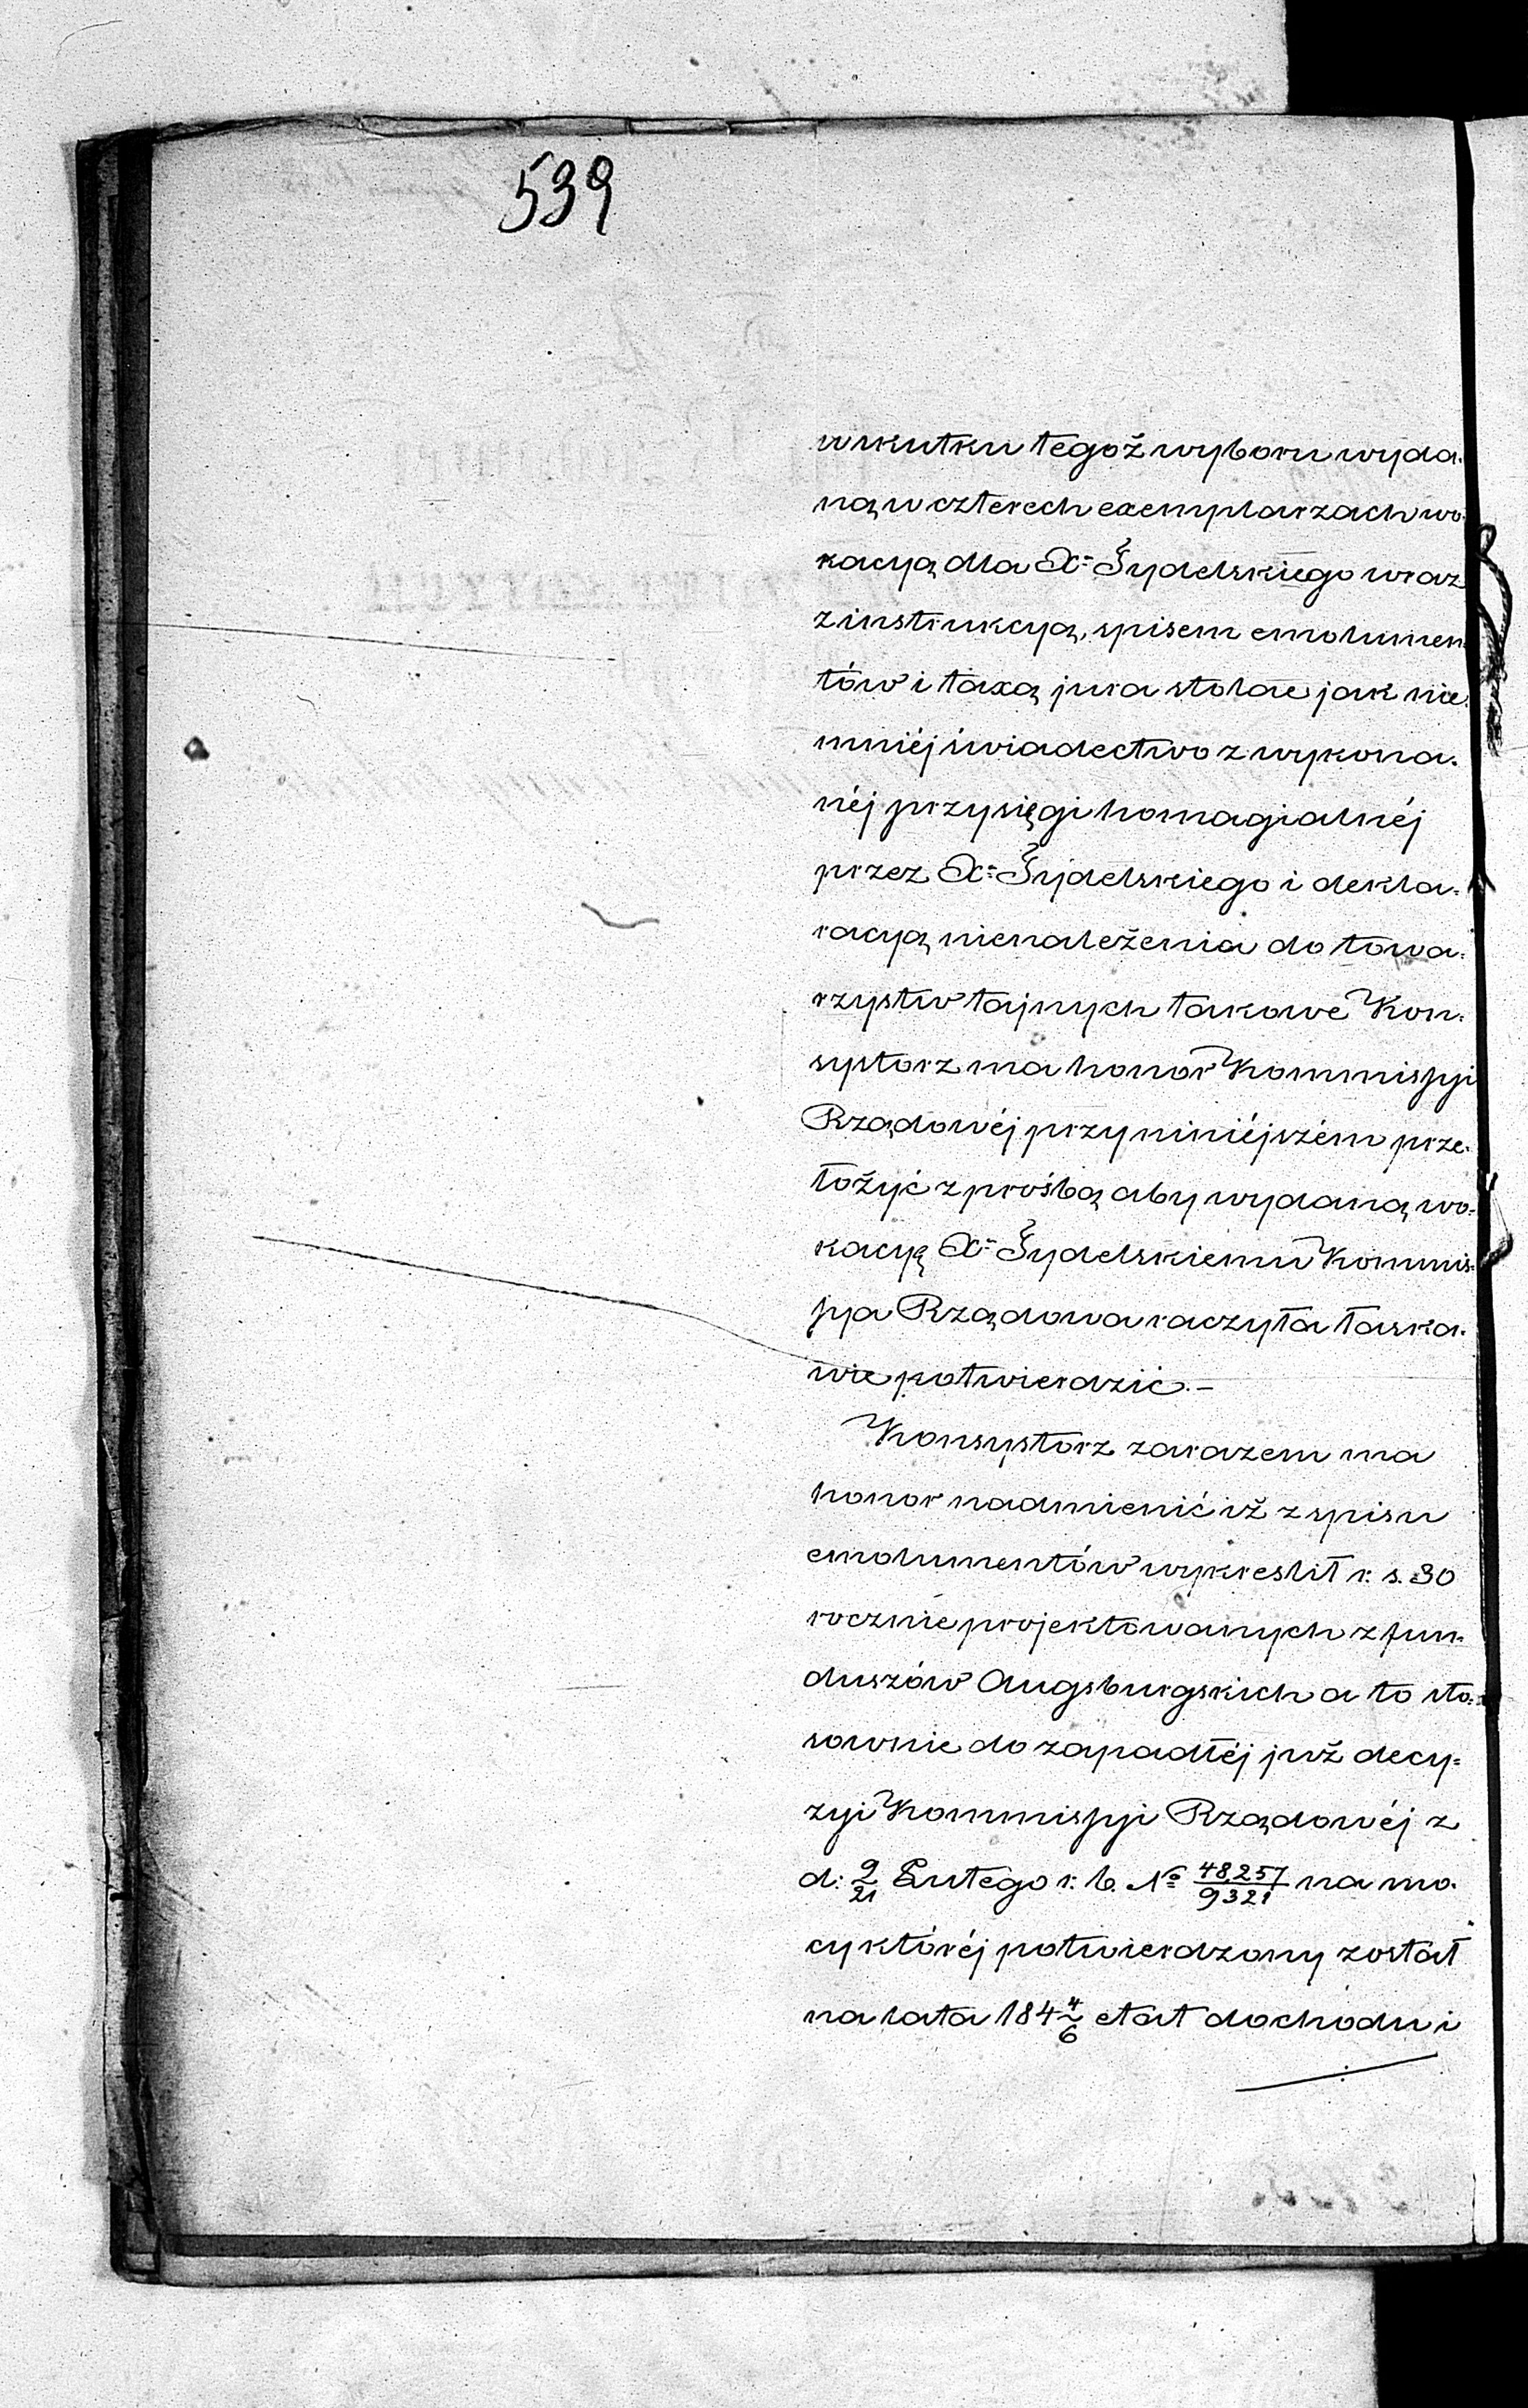 539
wskutku tegoż wyboru wyda-
ną w czterech exemplarzach wo-
kacyą dla X: Żydelskiego wraz
z instrukcyą, spisem emolumen-
tów i taxą jura stolae jak nie-
mniéj świadectwo z wykona-
néj przysięgi homagialnéj
przez X: Żydelskiego i dekla-
racyą nienależenia do towa-
rzystw tajnych takowe Kon-
systorz ma honor Kommissyi
Rządowéj przy niniéjszém prze-
łożyć z prośbą aby wydaną wo-
kacyę X: Żydelskiemu Kommis-
sya Rządowa raczyła łaska-
wie potwierdzić.–
Konsystorz zarazem ma
honor nadmienić iż z spisu
emolumentów wykreślił r: s. 30
rocznie projektowanych z fun-
duszów Augsburgskich a to sto-
sownie do zapadłéj już decy-
zyi Kommissyi Rządowéj z
d: 9/21 Lutego r: b. No 48,257/9321 na mo-
cy któréj potwierdzony został
na lata 184 4/6 etat dochodu i